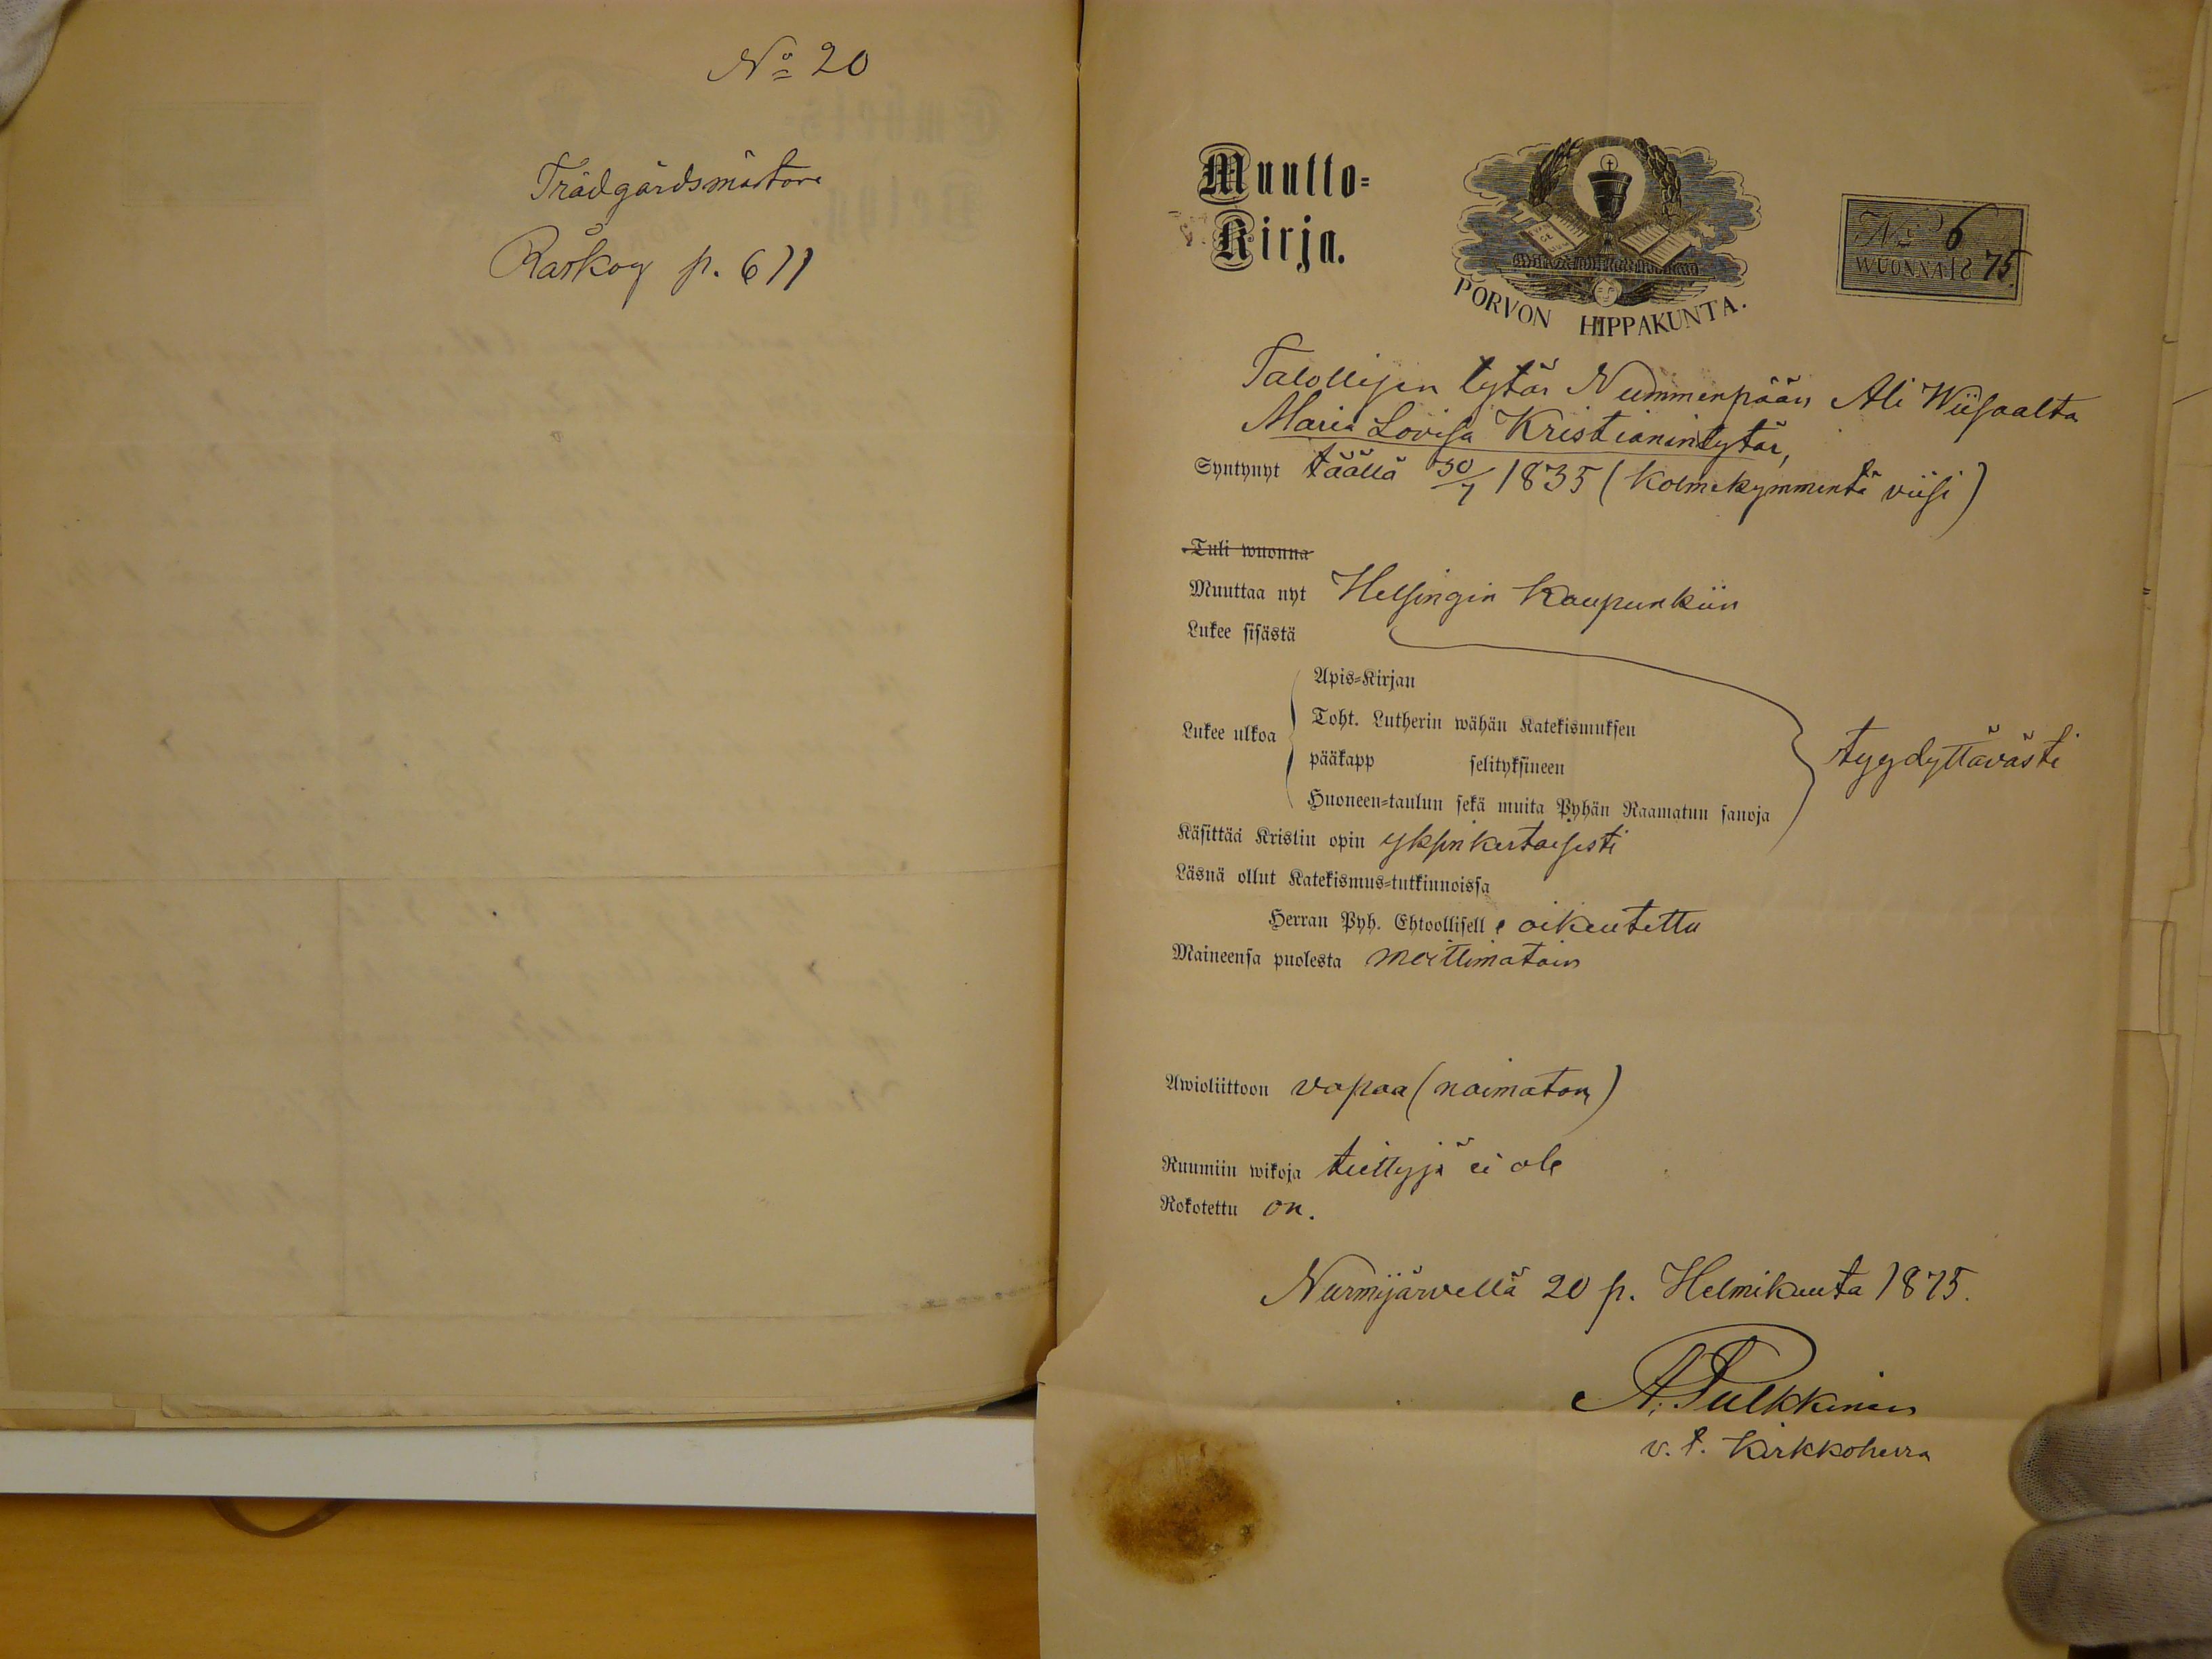 No 20
Trädgårdsmästare
Raskog p. 611
Muutto=
Kirja.
PORVON HIPPAKUNTA.
No 6
WUONNA 1875.
Talollisen tytär Nummenpään Ali Wiisaalta
Maria Lovisa Kristianintytär,
Syntynyt täällä 30/7 1835 (kolmekymmentä viisi)
Tuli wuonna
Muuttaa nyt Helsingin kaupunkiin
Lukee sisästä
Apis=Kirjan
Toht. Lutherin wähän Katekismuksen
Lukee ulkoa
pääkapp selityksineen
tyydyttävästi
Huoneen=taulun sekä muita Pyhän Raamatun sanoja
Käsittää Kristin opin yksinkertaisesti
Läsnä ollut Katekismus=tutkinnoissa
Herran Pyh. Ehtoollisell e oikeutettu
Maineensa puolesta moittimatoin
Awioliittoon vapaa (naimaton)
Ruumiin wikoja tiettyjä ei ole
Rokotettu on.
Nurmijärvellä 20 p. Helmikuuta 1875.
A. Pulkkinen
v. t. Kirkkoherra